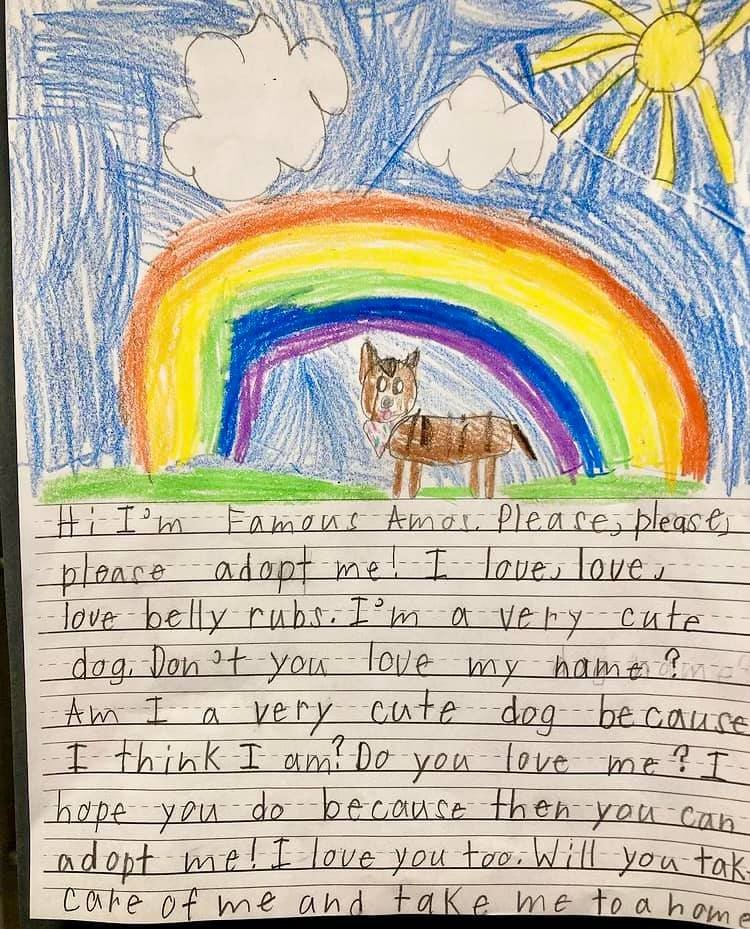 Hi I'm Famous Amos. Please, please,
please adopt me! I love, love,
love belly rubs. I'm a very cute
dog. Don't you love my name?
Am I a very cute dog because
I think I am? Do you love me? I
hope you do because then you can
adopt me! I love you too. Will you tak
care of me and take me to a home